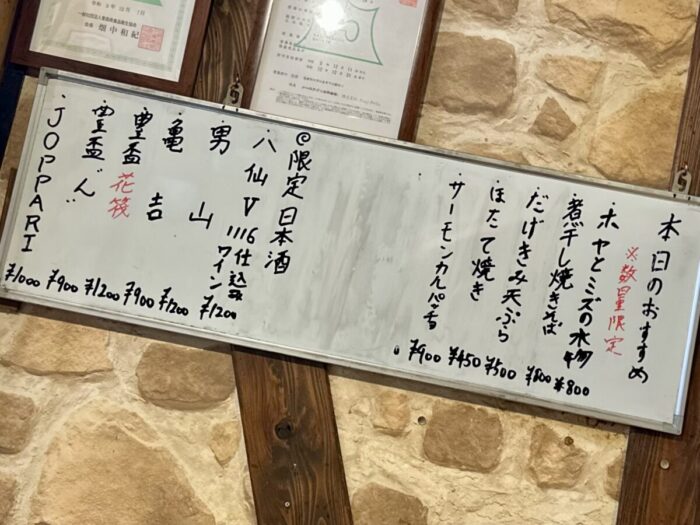 本日のおすすめ
※数量限定
・ホヤとミズの水物 ¥800
・煮干し焼きそば ¥800
・だけきみ天ぷら ¥500
・ほたて焼き ¥450
・サーモンカルパッチョ ¥900
@限定日本酒
・八仙V1116仕込み
ワイン ¥1200
・男山 ¥1200
・亀吉 ¥900
・豊盃花筏 ¥1200
・豊盃ん ¥900
・JOPPARI ¥1000
会長 畑中和紀